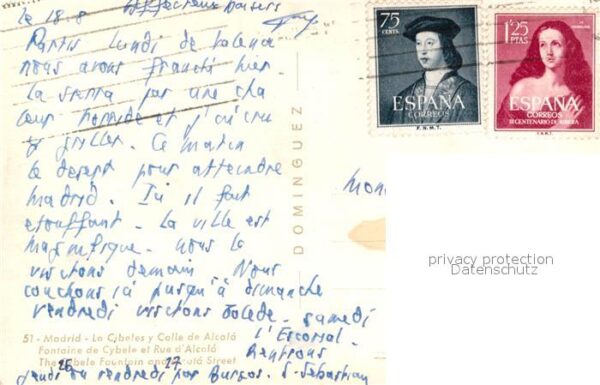 le 18.8 Affectueux baisers
Partis lundi de Valence
nous avons franchi hier
la sierra par une cha
leur torride et j'ai cru
y griller. Ce matin
le desert pour atteindre
Madrid. Ici il fait
etouffant. La ville est
magnifique. nous la
visitons demain. Nous
couchons ici jusqu'à dimanche
vendredi visitons Tolede. samedi
l'Escorial.
Rentrons
jeudi 26 ou vendredi 27 par Burgos. S-Sebastian
51 - Madrid - La Cibeles y Calle de Alcalá
Fontaine de Cybele et Rue d'Alcalá
The Cybele Fountain and Alcalá Street
DOMINGUEZ
75
CENTS.
ESPAÑA
CORREOS
F.N.M.T.
1'25
PTAS
ESPAÑA
CORREOS
III CENTENARIO DE RIBERA
F.N.M.T.
privacy protection
Datenschutz